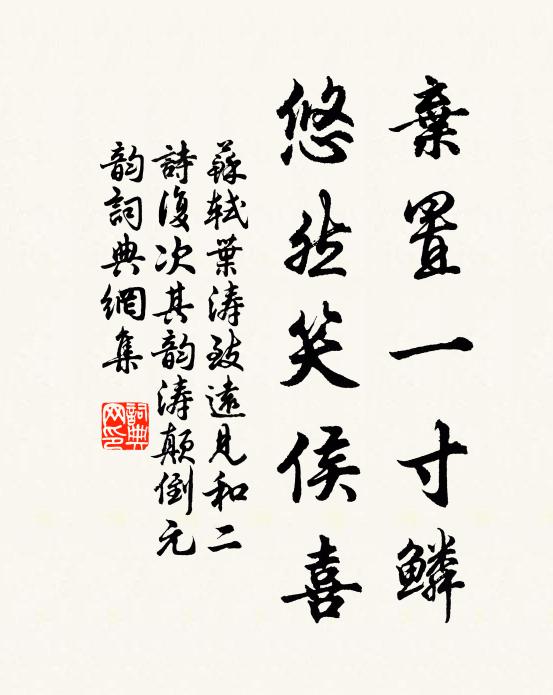 棄置一寸鱗
悠然笑侯喜
蘇軾葉濤致遠見和二
詩復次其韵濤顛倒元
韵詞典網集
詞典网印